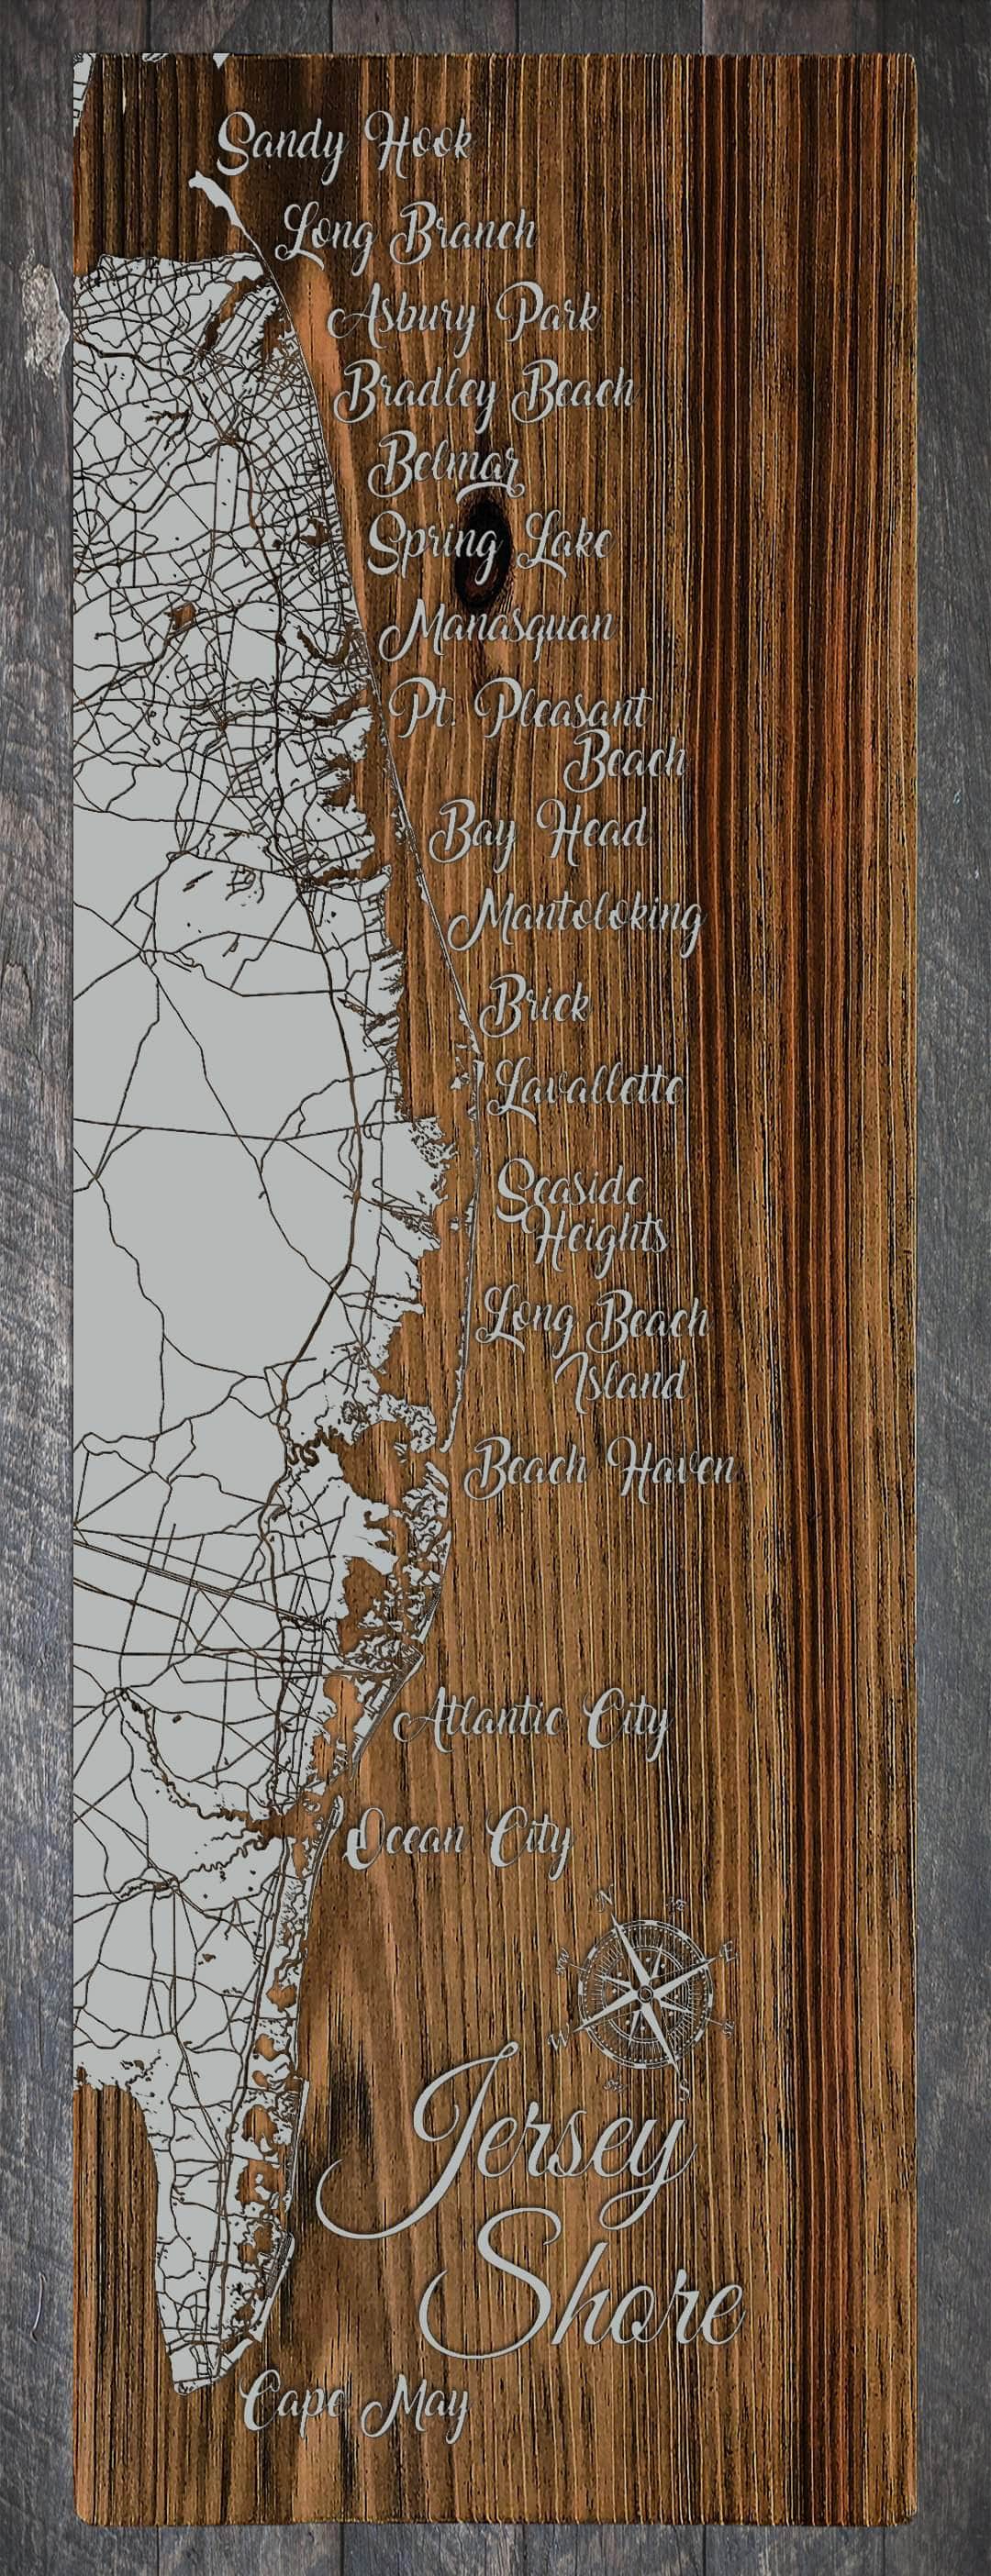 Sandy Hook
Long Branch
Asbury Park
Bradley Beach
Belmar
Spring Lake
Manasquan
Pt. Pleasant
Beach
Bay Head
Mantoloking
Brick
Lavallette
Seaside
Heights
Long Beach
Island
Beach Haven
Atlantic City
Ocean City
N
E
W
S
Jersey
Shore
Cape May